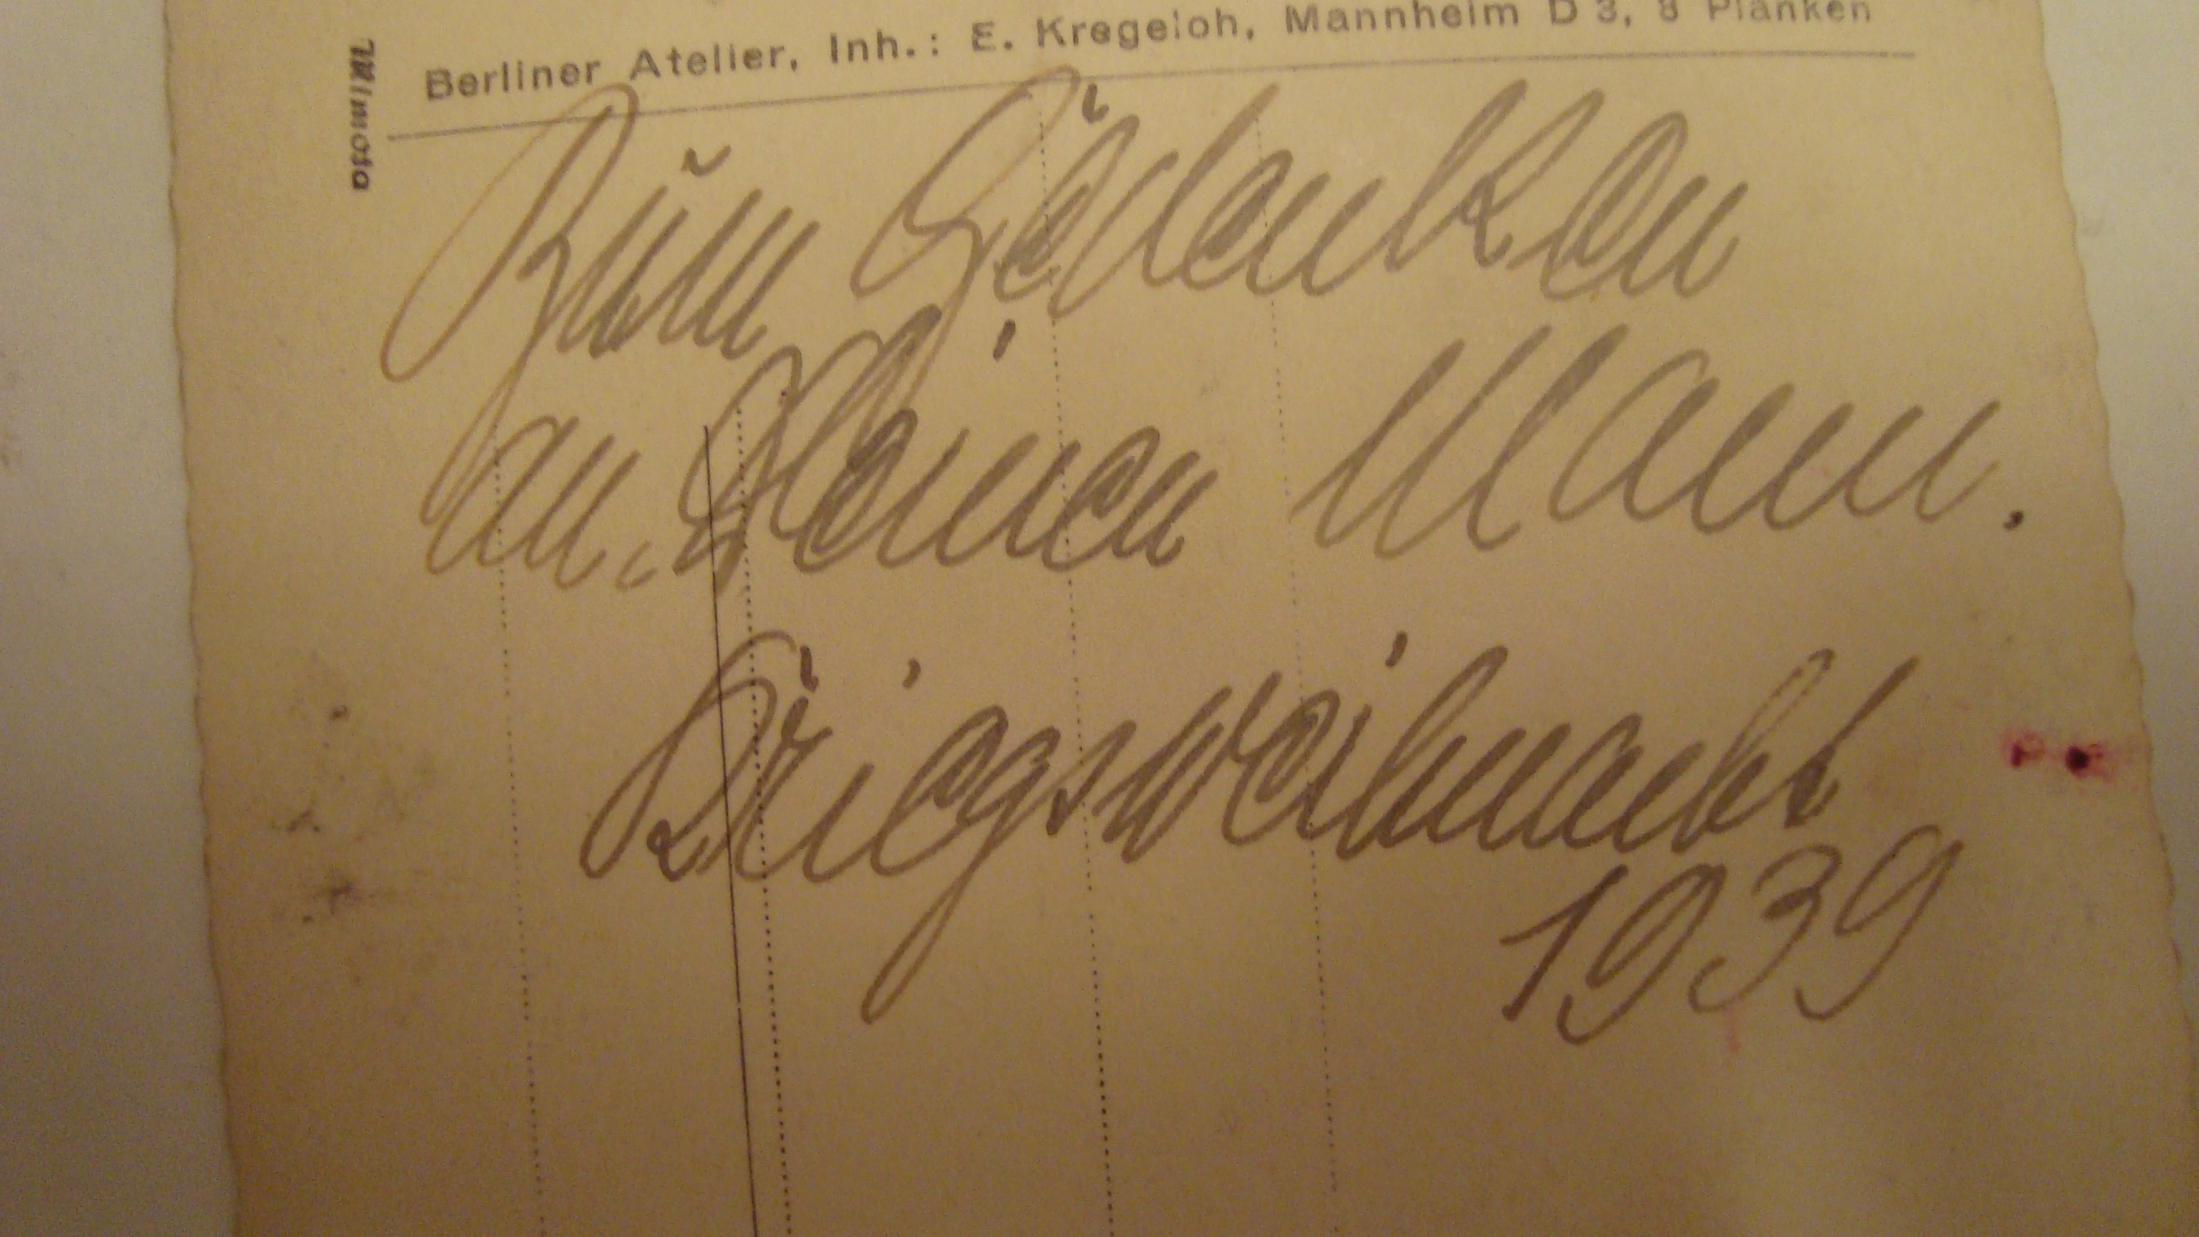 Berliner Atelier, Inh.: E. Kregeloh, Mannheim D 3, 8 Planken
Mimosa
Zum Gedenken
an Deinen Mann.
Kriegsweihnacht
1939